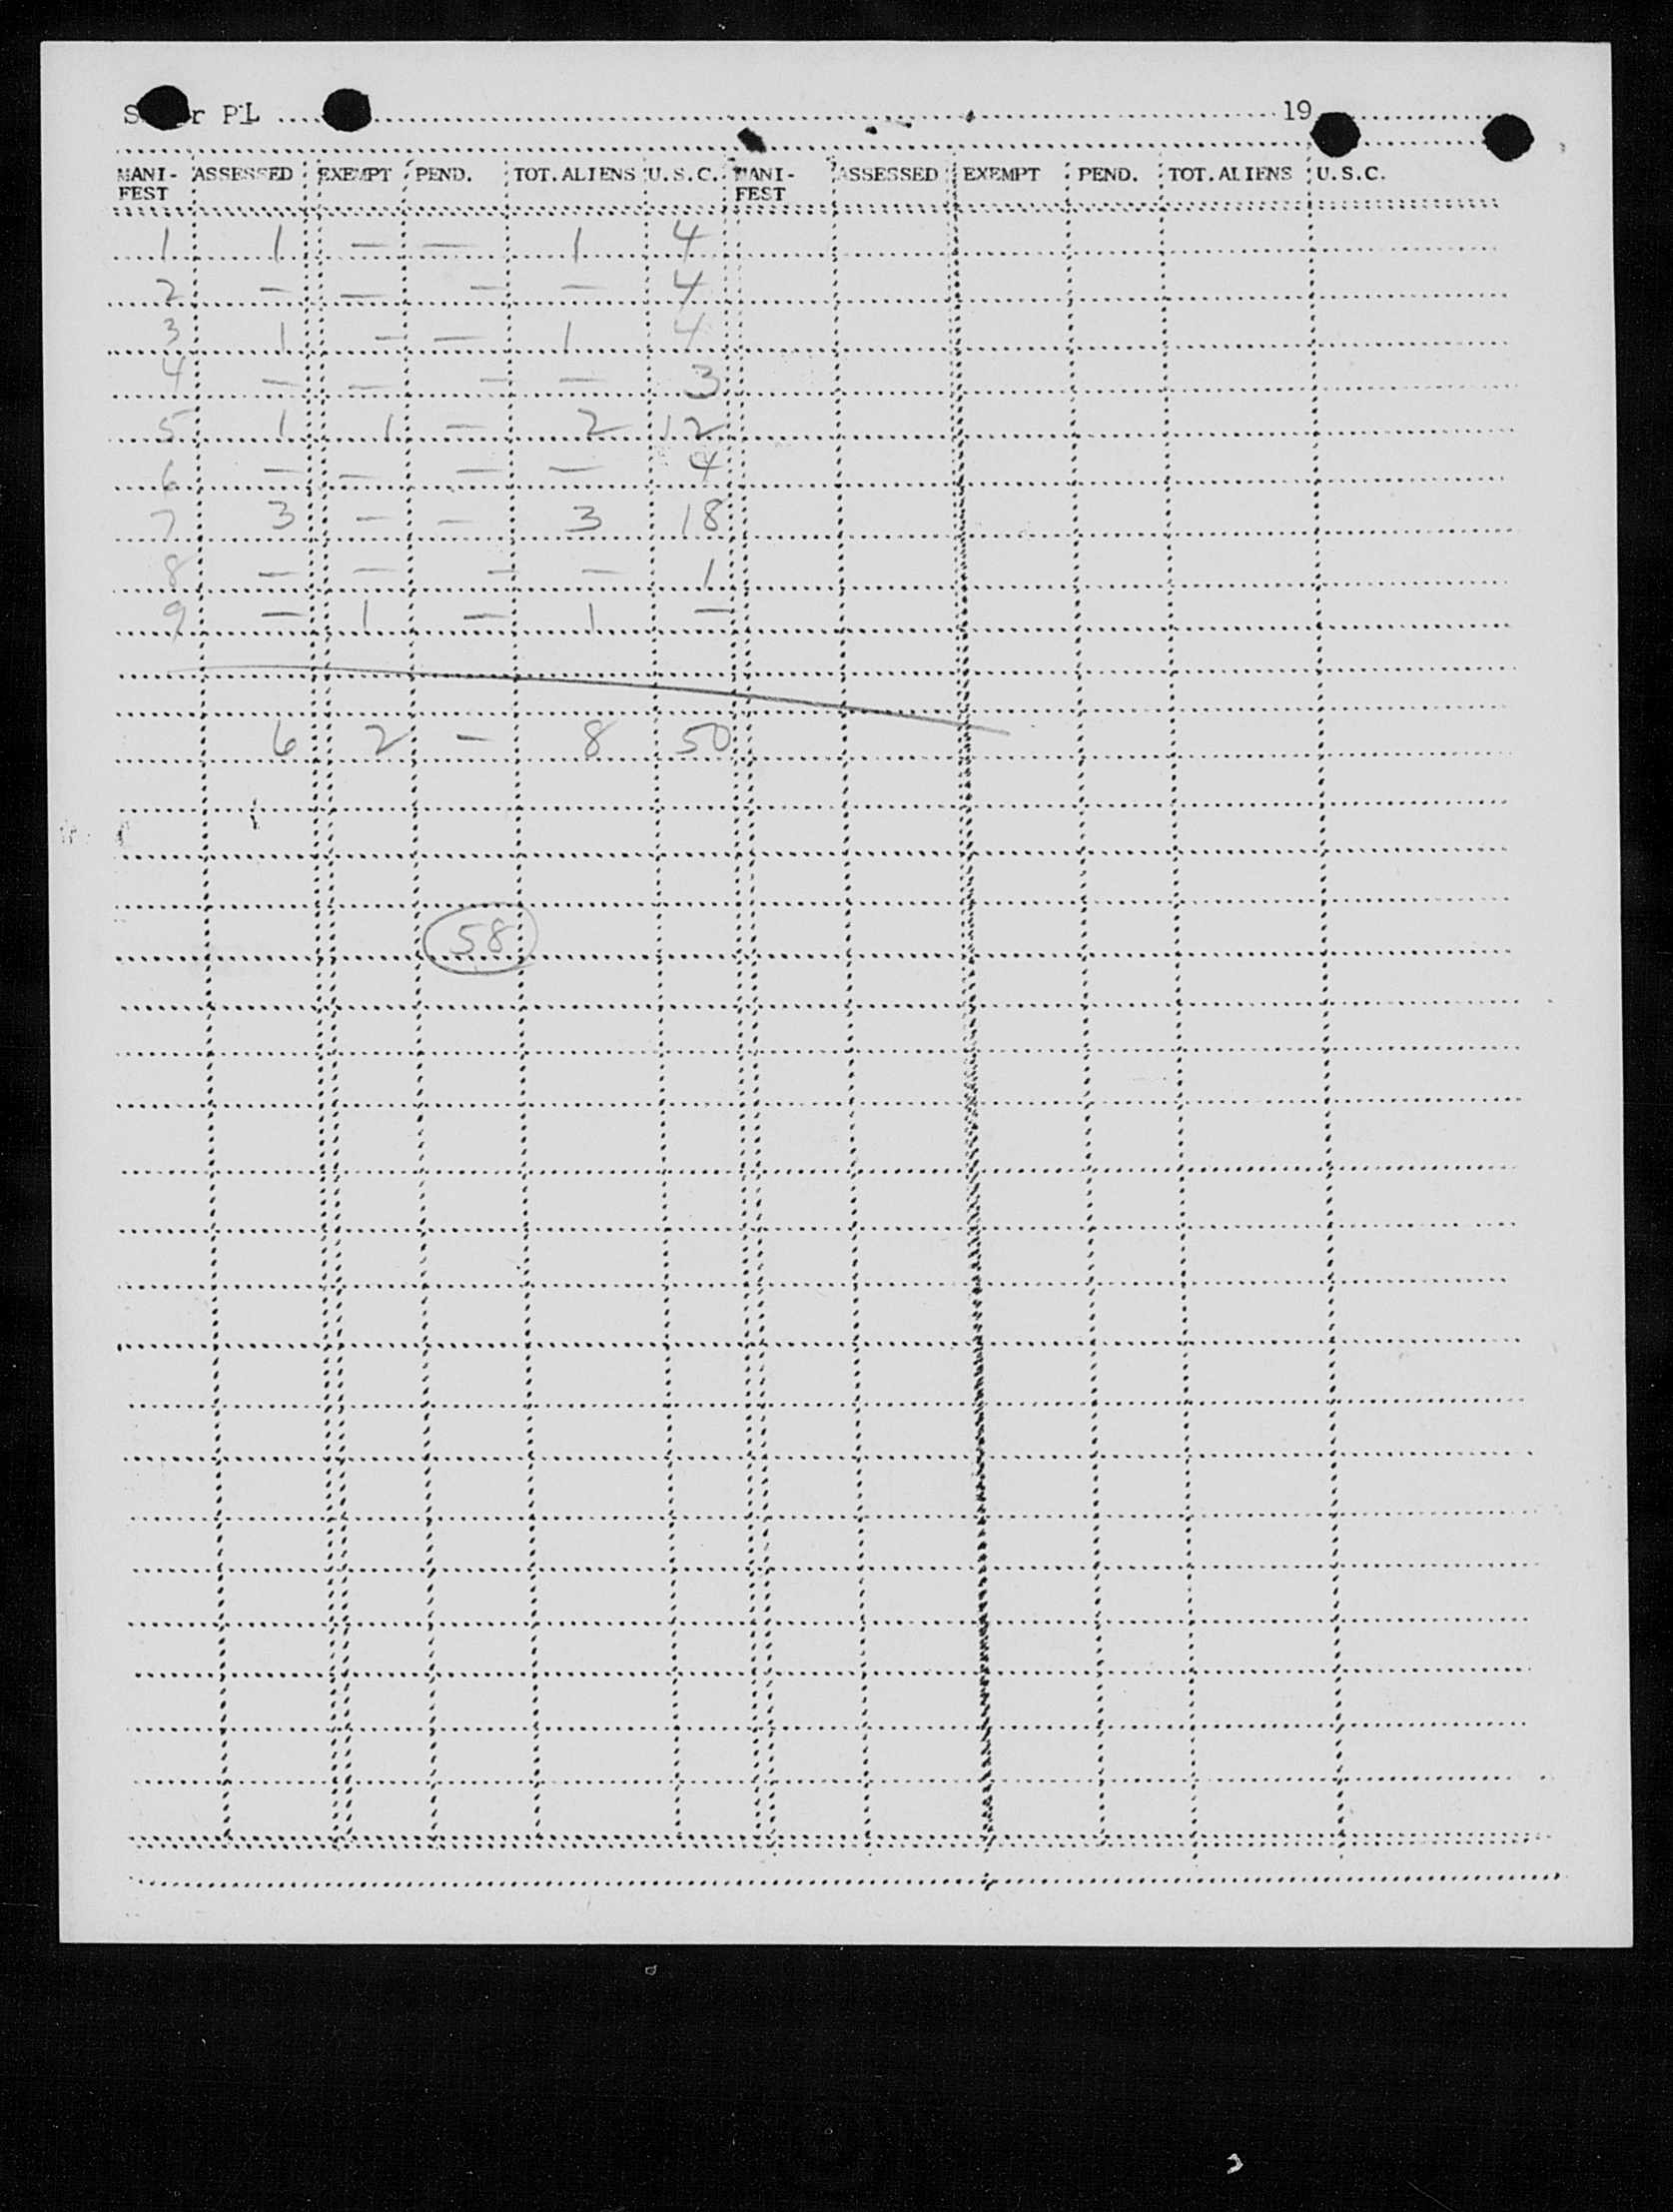 PL 19
MANI- ASSESSED EXEMPT PEND. TOT. ALIENS U.S.C. MANI- ASSESSED EXEMPT PEND. TOT. ALIENS U.S.C.
FEST FEST
1 1 — — 1 4
2 — — — — 4
3 1 — — 1 4
4 — — — — 3
5 1 1 — 2 12
6 — — — — 4
7 3 — — 3 18
8 — — — — 1
9 — 1 — 1 —
6 2 — 8 50
58